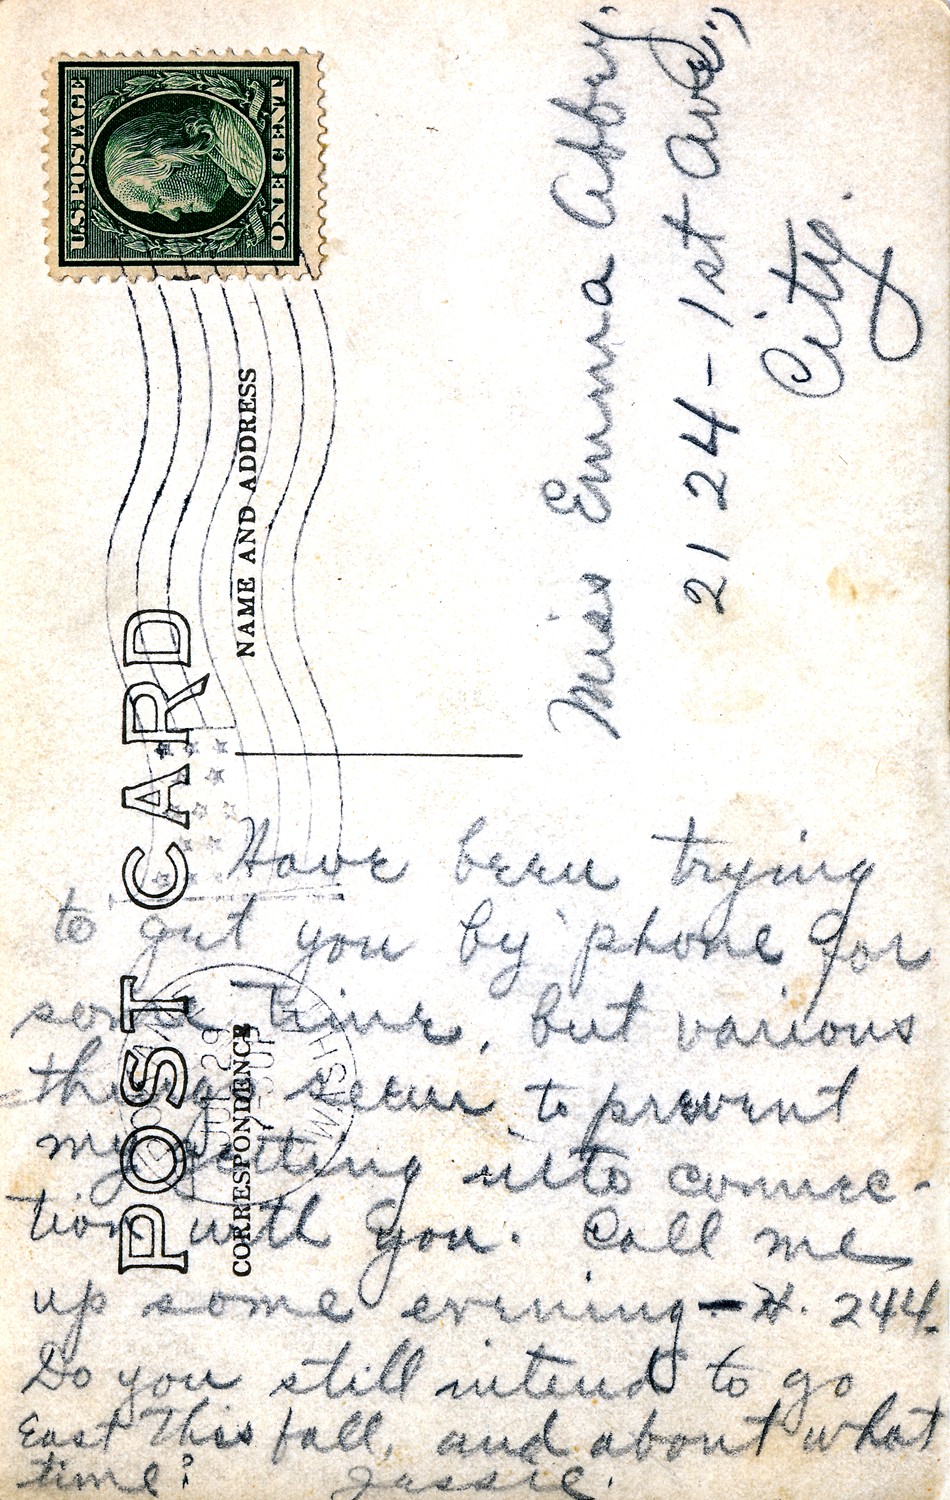 U.S. POSTAGE
ONE CENT
POST CARD
NAME AND ADDRESS
CORRESPONDENCE
WASH
JUL 29
Miss Emma Abbey.
2124 - 1st Ave.,
City.
Have been trying
to get you by 'phone for
some time, but various
things seem to prevent
my getting into connec-
tion with you. Call me
up some evening - H. 244.
Do you still intend to go
East this fall, and about what
time? Jessie.